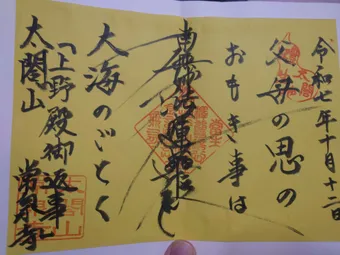 令和七年十月十二日
父母の恩の
おもき事は
南無妙法蓮華経
大海のごとく
「上野殿御返事」
太閤山
常泉寺